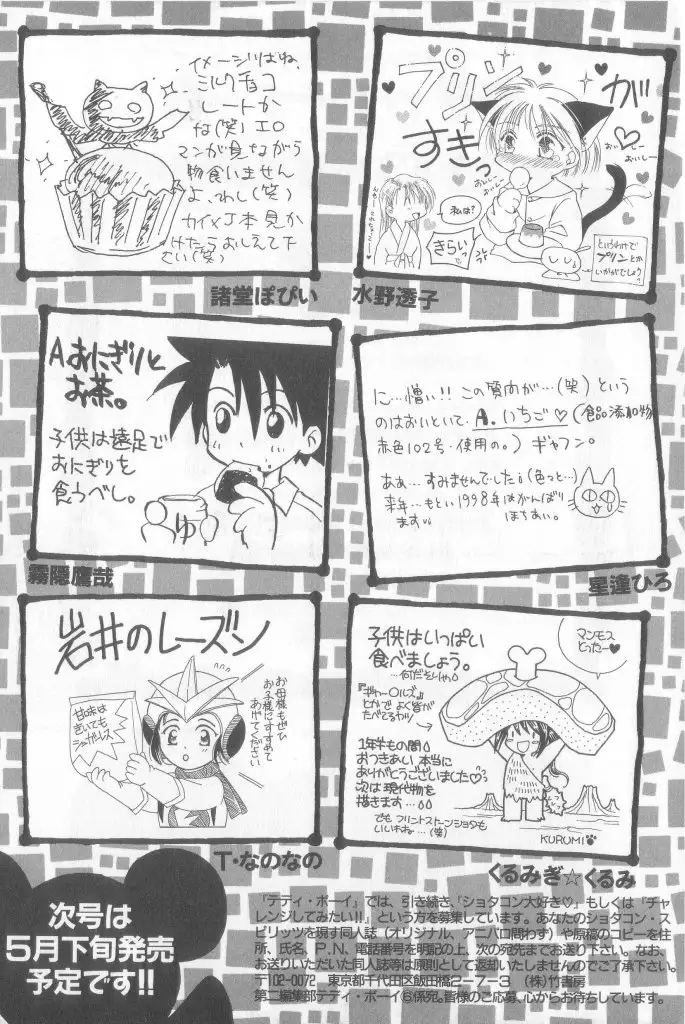 イメージ的にはね、
ミルクチョコ
レートか
な(笑)エロ
マンガ見ながら
物食いません
よ、わし(笑)
カイ×J本見か
けたらおしえて下
さい(笑)
諸堂ぽぴい
プリンが
すきっ
おいしー
おいしー
おいしー
おいしー
私は?
きらいっ
というわけで
プリンとか
いかがでしょう?
水野透子
Aおにぎりと
お茶。
子供は遠足で
おにぎりを
食うべし。
ゆ
霧隠鷹哉
に…憎い!!この質問が…(笑)という
のはおいといて、A.いちご♡(食品添加物
赤色102号・使用の。)ギャフン。
ああ…すみませんでした¡(色っと…)
来年…もとい1998年はがんばり
ます
ぼちぼち。
星逢ひろ
岩井のレーズン
お母様もぜひ
お子様にすすめて
あげてください
甘味は
きいてても
シュガーレス
T・なのなの
子供はいっぱい
食べましょう。
…何だそりゃ
『ギャー〇ルズ』
とかで よく皆が
たべてるヤツ
マンモス
とったー♥
1年半もの間
おつきあい 本当に
ありがとうございました♡
次は現代物を
描きます…
でも フリントストーンショタも
いいかね…(笑)
KURUMI
くるみぎ☆くるみ
次号は
5月下旬発売
予定です!!
「テディ・ボーイ」では、引き続き、「ショタコン大好き♡」もしくは「チャ
レンジしてみたい!!」という方を募集しています。あなたのショタコン・ス
ピリッツを現す同人誌(オリジナル、アニパロ問わず)や原稿のコピーを住
所、氏名、P.N、電話番号を明記の上、次の宛先までお送り下さい。なお、
お送りいただいた同人誌等は原則として返却いたしませんのでご了承下さい。
〒102-0072 東京都千代田区飯田橋2-7-3 (株)竹書房
第二編集部テディ・ボーイ⑥係宛。皆様のご応募、心からお待ちしています。